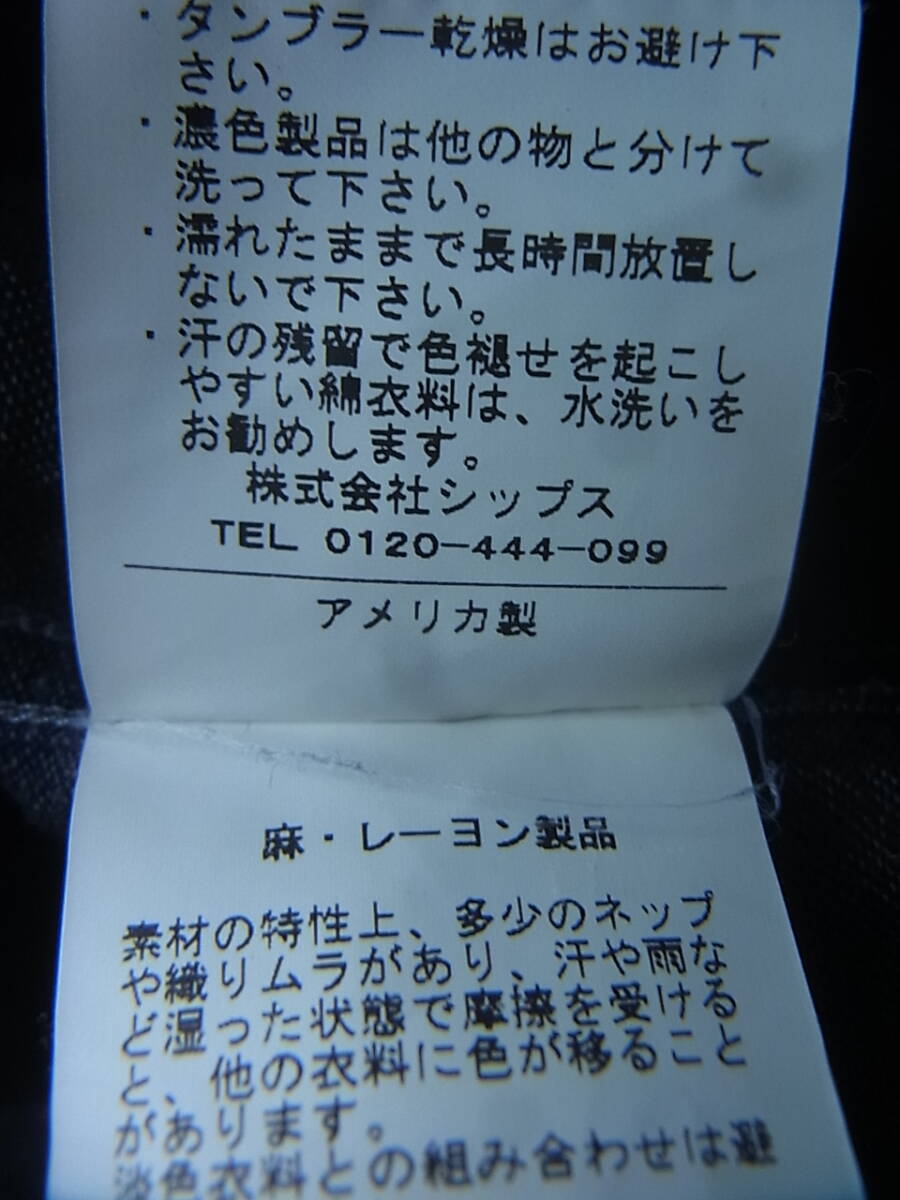 ・タンブラー乾燥はお避け下
さい。
・濃色製品は他の物と分けて
洗って下さい。
・濡れたままで長時間放置し
ないで下さい。
・汗の残留で色褪せを起こし
やすい綿衣料は、水洗いを
お勧めします。
株式会社シップス
TEL 0120-444-099
アメリカ製
麻・レーヨン製品
素材の特性上、多少のネップ
や織りムラがあり、汗や雨な
ど湿った状態で摩擦を受ける
と、他の衣料に色が移ること
があります。
淡色衣料との組み合わせは避